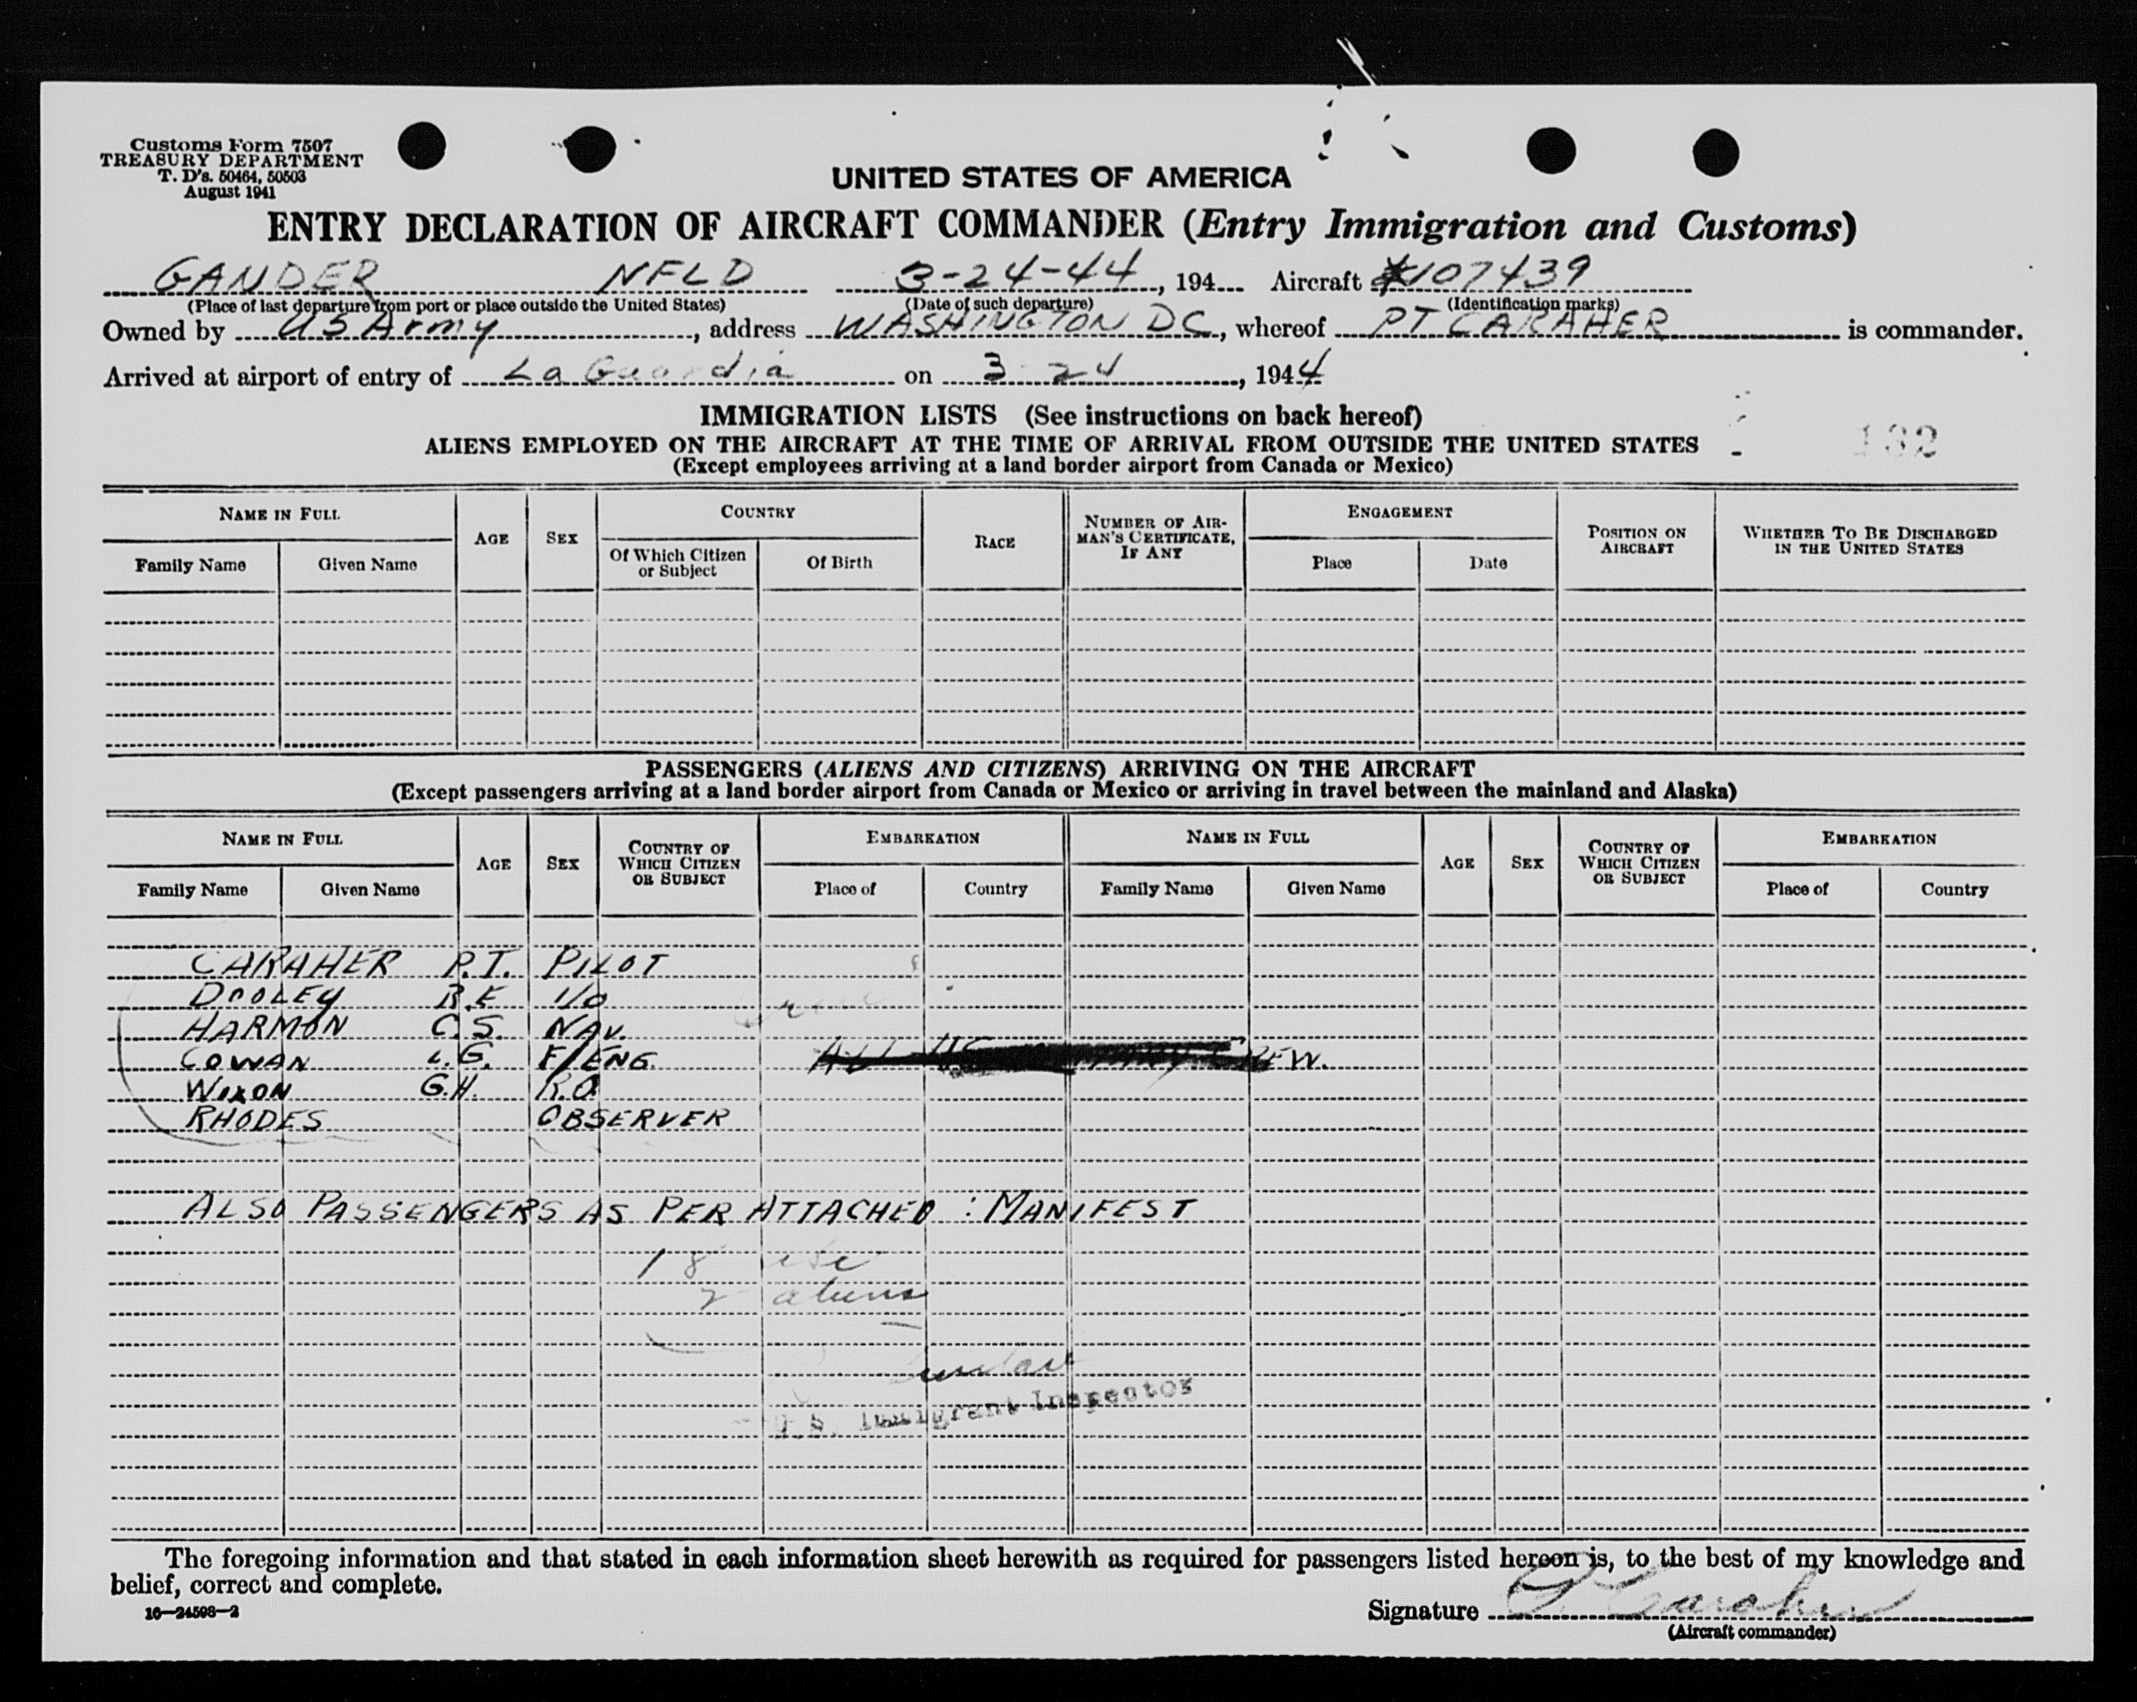 Customs Form 7507
TREASURY DEPARTMENT
T. D's. 50464, 50503
August 1941
UNITED STATES OF AMERICA
ENTRY DECLARATION OF AIRCRAFT COMMANDER (Entry Immigration and Customs)
GANDER NFLD 3-24-44, 194 Aircraft 107439
(Place of last departure from port or place outside the United States) (Date of such departure) (Identification marks)
Owned by US Army, address WASHINGTON DC, whereof PT CARAHER is commander.
Arrived at airport of entry of La Guardia on 3 24, 1944
IMMIGRATION LISTS (See instructions on back hereof)
ALIENS EMPLOYED ON THE AIRCRAFT AT THE TIME OF ARRIVAL FROM OUTSIDE THE UNITED STATES 132
(Except employees arriving at a land border airport from Canada or Mexico)
NAME IN FULL AGE SEX COUNTRY RACE NUMBER OF AIRMAN'S CERTIFICATE, IF ANY ENGAGEMENT POSITION ON AIRCRAFT WHETHER TO BE DISCHARGED IN THE UNITED STATES
Family Name Given Name Of Which Citizen or Subject Of Birth Place Date
PASSENGERS (ALIENS AND CITIZENS) ARRIVING ON THE AIRCRAFT
(Except passengers arriving at a land border airport from Canada or Mexico or arriving in travel between the mainland and Alaska)
NAME IN FULL AGE SEX COUNTRY OF WHICH CITIZEN OR SUBJECT EMBARKATION NAME IN FULL AGE SEX COUNTRY OF WHICH CITIZEN OR SUBJECT EMBARKATION
Family Name Given Name Place of Country Family Name Given Name Place of Country
CARAHER P.T. PILOT
DOOLEY R.E 1/O
HARMON C.S. NAV.
COWAN L.G. F/ENG. ALL US CREW.
WIXON G.H. R.O.
RHODES OBSERVER
ALSO PASSENGERS AS PER ATTACHED : MANIFEST
18
2 aliens
U.S. Immigrant Inspector
The foregoing information and that stated in each information sheet herewith as required for passengers listed hereon is, to the best of my knowledge and
belief, correct and complete.
16—24598-2
Signature P. T. Caraher
(Aircraft commander)